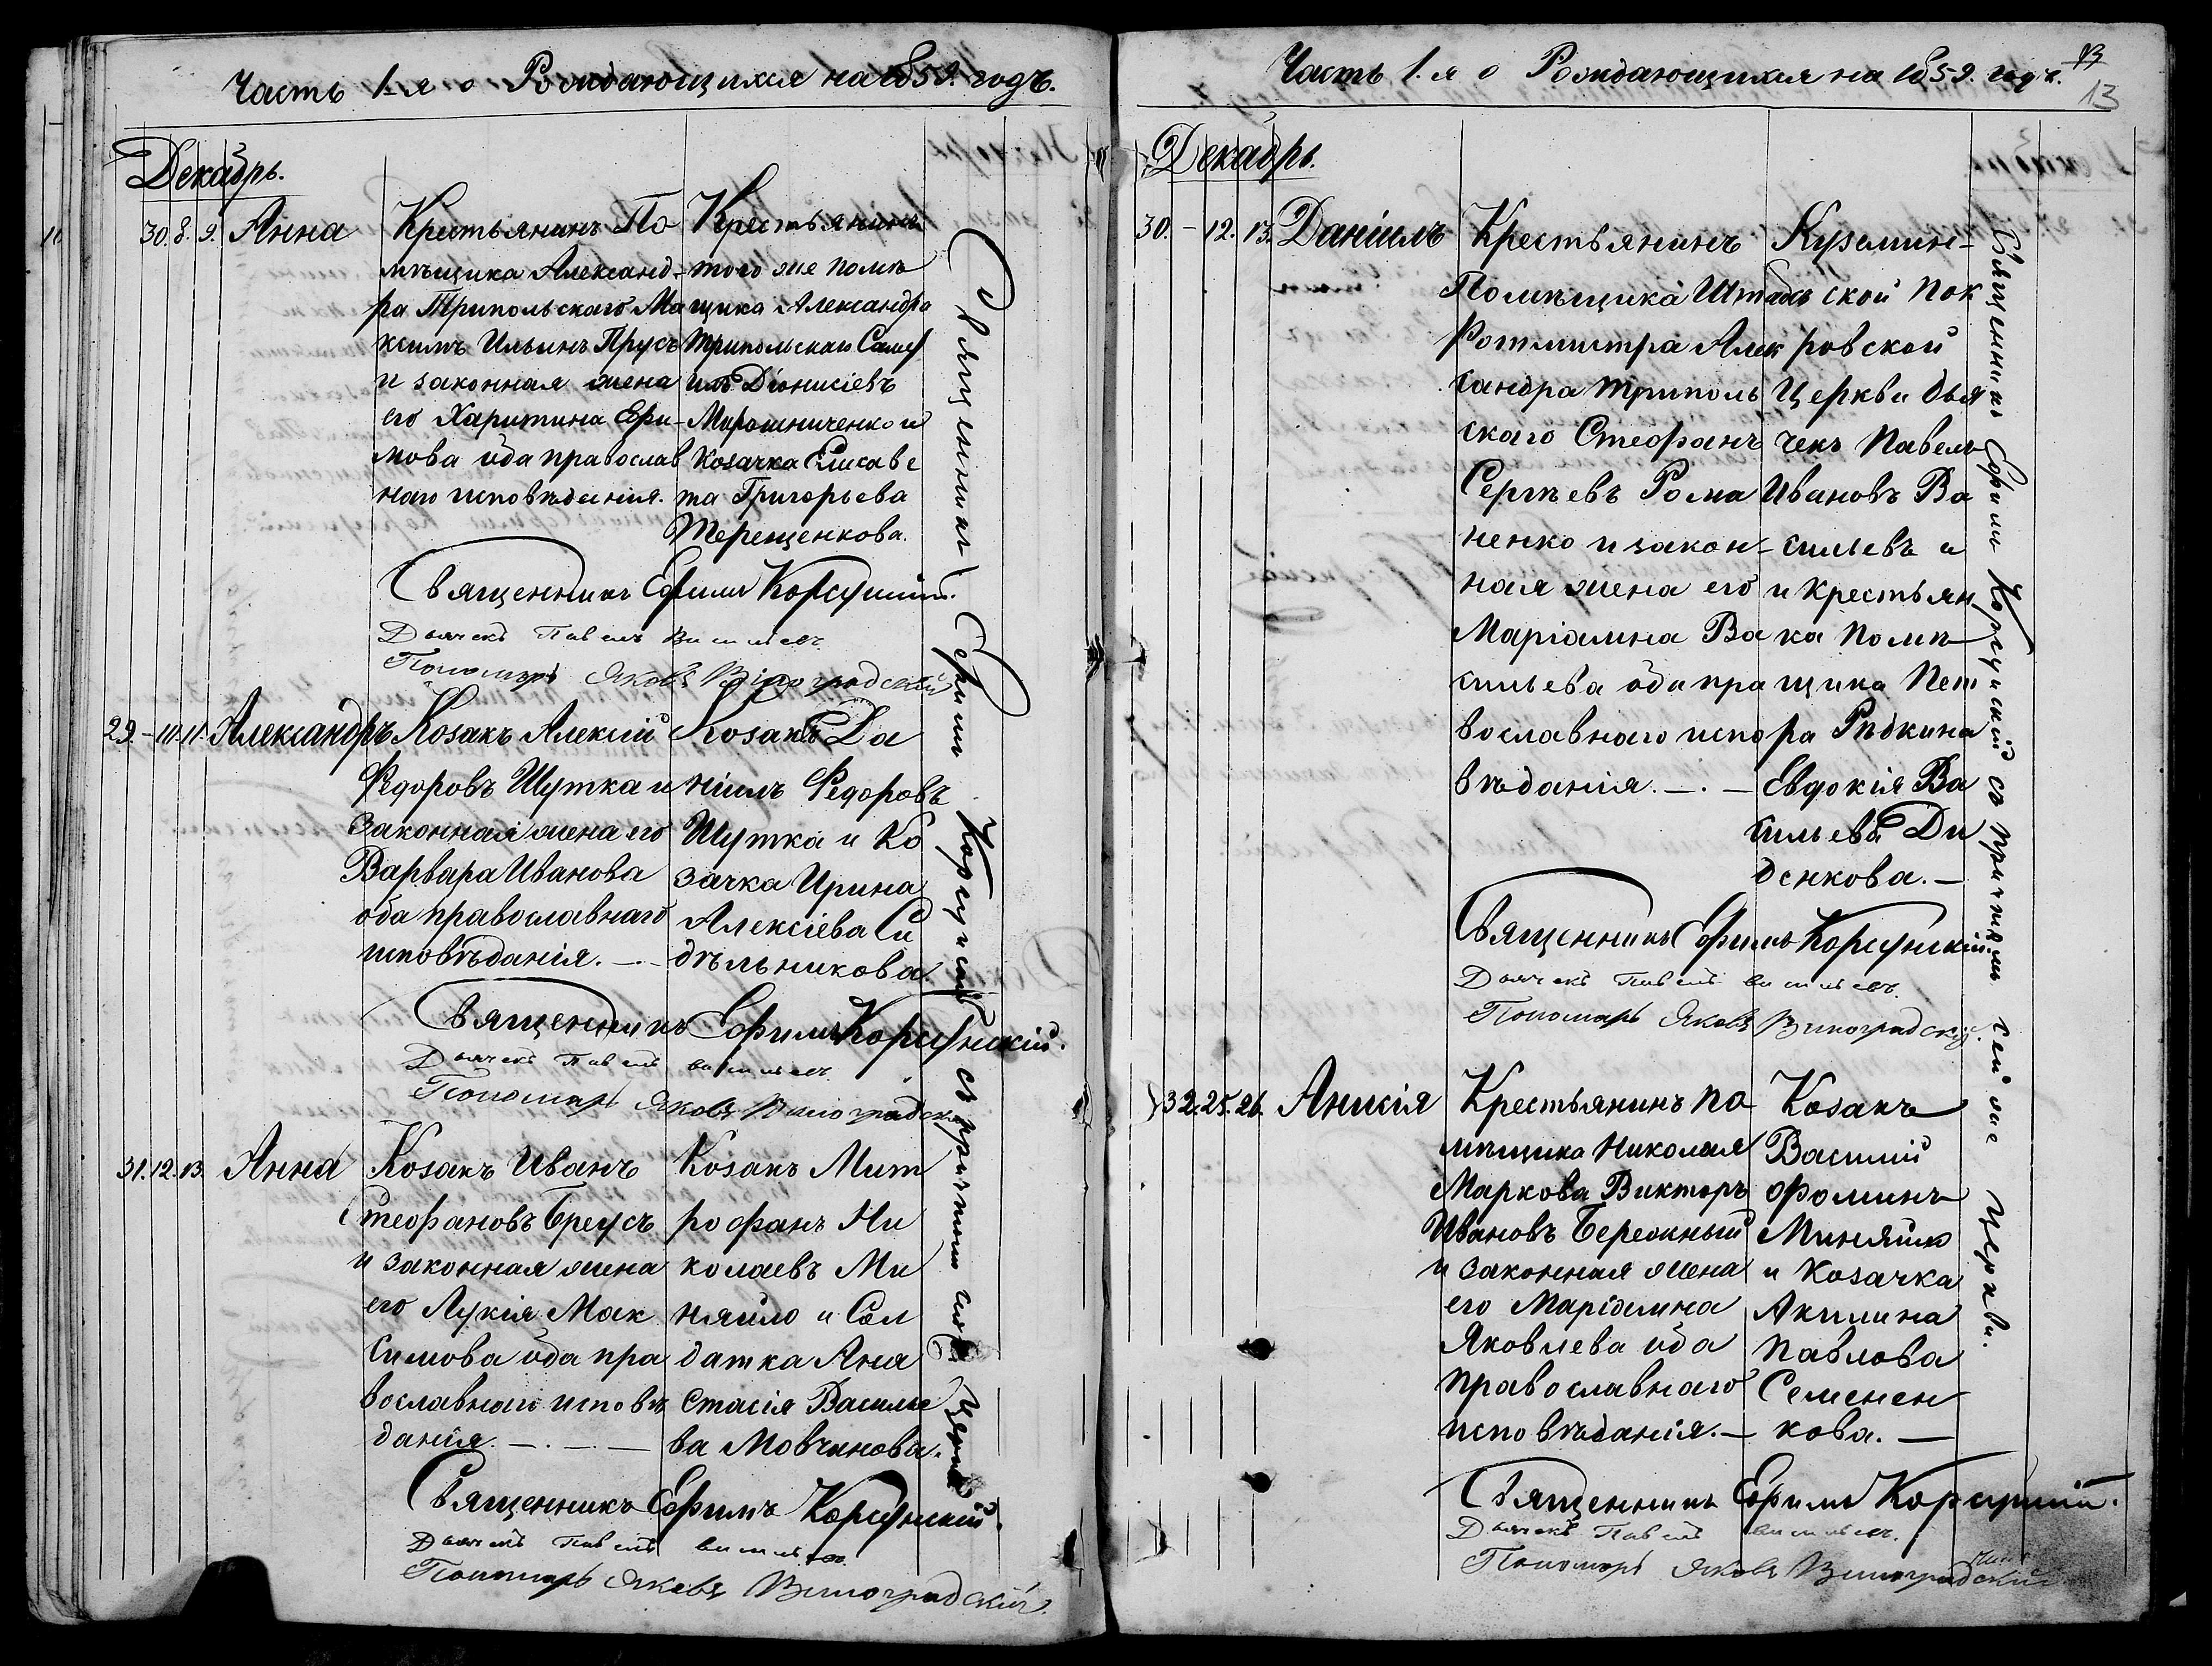 Часть 1-я о Рождающихся на 1859. годъ.
Декабрь.
30. 8. 9. Анна
Крестьянинъ По
мѣщика Александ-
ра Трипольскаго Ма
ксимъ Ильинъ Прусъ
и законная жена
его Харитина Ефи-
мова оба православ
наго исповѣданія.
Крестьянинъ
того же помѣ
щика Александра
Трипольскаго Саму
илъ Діонисіевъ
Мирошниченко и
Козачка Елисаве
та Григорьева
Терещенкова.
Священникъ Ефимъ Корсунскій.
Дьячекъ Павелъ Васильевъ
Пономарь Яковъ Виноградскій
29. - 10. 11. Александръ
Козакъ Алексій
Федоровъ Шутка и
законная жена его
Варвара Иванова
оба православнаго
исповѣданія. —.—
Козакъ Да
ніилъ Федоровъ
Шутка и Ко
зачка Ирина
Алексіева Си
дѣльникова.
Священникъ Ефимъ Корсунскій.
Дьячекъ Павелъ Васильевъ
Пономарь Яковъ Виноградскій
31. 12. 13. Анна
Козакъ Иванъ
Стефановъ Бреусъ
и законная жена
его Лукія Мак
симова оба пра
вославнаго исповѣ
данія. —.—.—
Козакъ Мит
рофанъ Ни
колаевъ Ми
няйло и Сол
датка Ана
стасія Василье
ва Мовчанова.
Священникъ Ефимъ Корсунскій.
Дьячекъ Павелъ Васильевъ.
Пономарь Яковъ Виноградскій.
Священникъ Ефимъ Корсунскій съ причтомъ сей же Церкви
Часть 1.я о Рождающихся на 1859. годъ.
13
13
Декабрь.
30. - 12. 13. Даніилъ
Крестьянинъ
Помѣщика Штабъ
Ротмистра Алек
сандра Триполь
скаго Стефанъ
Сергѣевъ Рома
ненко и закон-
ная жена его
Маріамна Ва
сильева оба пра
вославнаго испо
вѣданія. —.—
Кузьмин-
ской Пок
ровской
Церкви дья
чекъ Павелъ
Ивановъ Ва
сильевъ и
и крестьян
ка Помѣ
щика Пет
ра Рѣдкина
Евдокія Ва
сильева Ди
денкова.—
Священникъ Ефимъ Корсунскій.
Дьячекъ Павелъ Васильевъ.
Пономарь Яковъ Виноградскій.
32. 25. 26. Анисія
Крестьянинъ по
мѣщика Николая
Маркова Викторъ
Ивановъ Бережный
и законная жена
его Маріамна
Яковлева оба
православнаго
исповѣданія.—
Козакъ
Василій
Фоминъ
Миняйло
и Козачка
Акилина
Павлова
Семенен
кова. —
Священникъ Ефимъ Корсунскій.
Дьячекъ Павелъ Васильевъ.
Пономарь Яковъ Виноградскій
Священникъ Ефимъ Корсунскій съ причтомъ сей же Церкви.